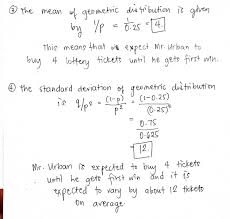 ③ the mean of geometric distribution is given
by 1/p = 1/0.25 = 4
This means that we expect Mr. Urban to
buy 4 lottery tickets until he gets first win.
④ the standard deviation of geometric distribution
is q/p² = (1-p)/p² = (1-0.25)/(0.25)²
= 0.75/0.625
= 12
Mr. Urban is expected to buy 4 tickets
until he gets first win and it is
expected to vary by about 12 tickets
on average